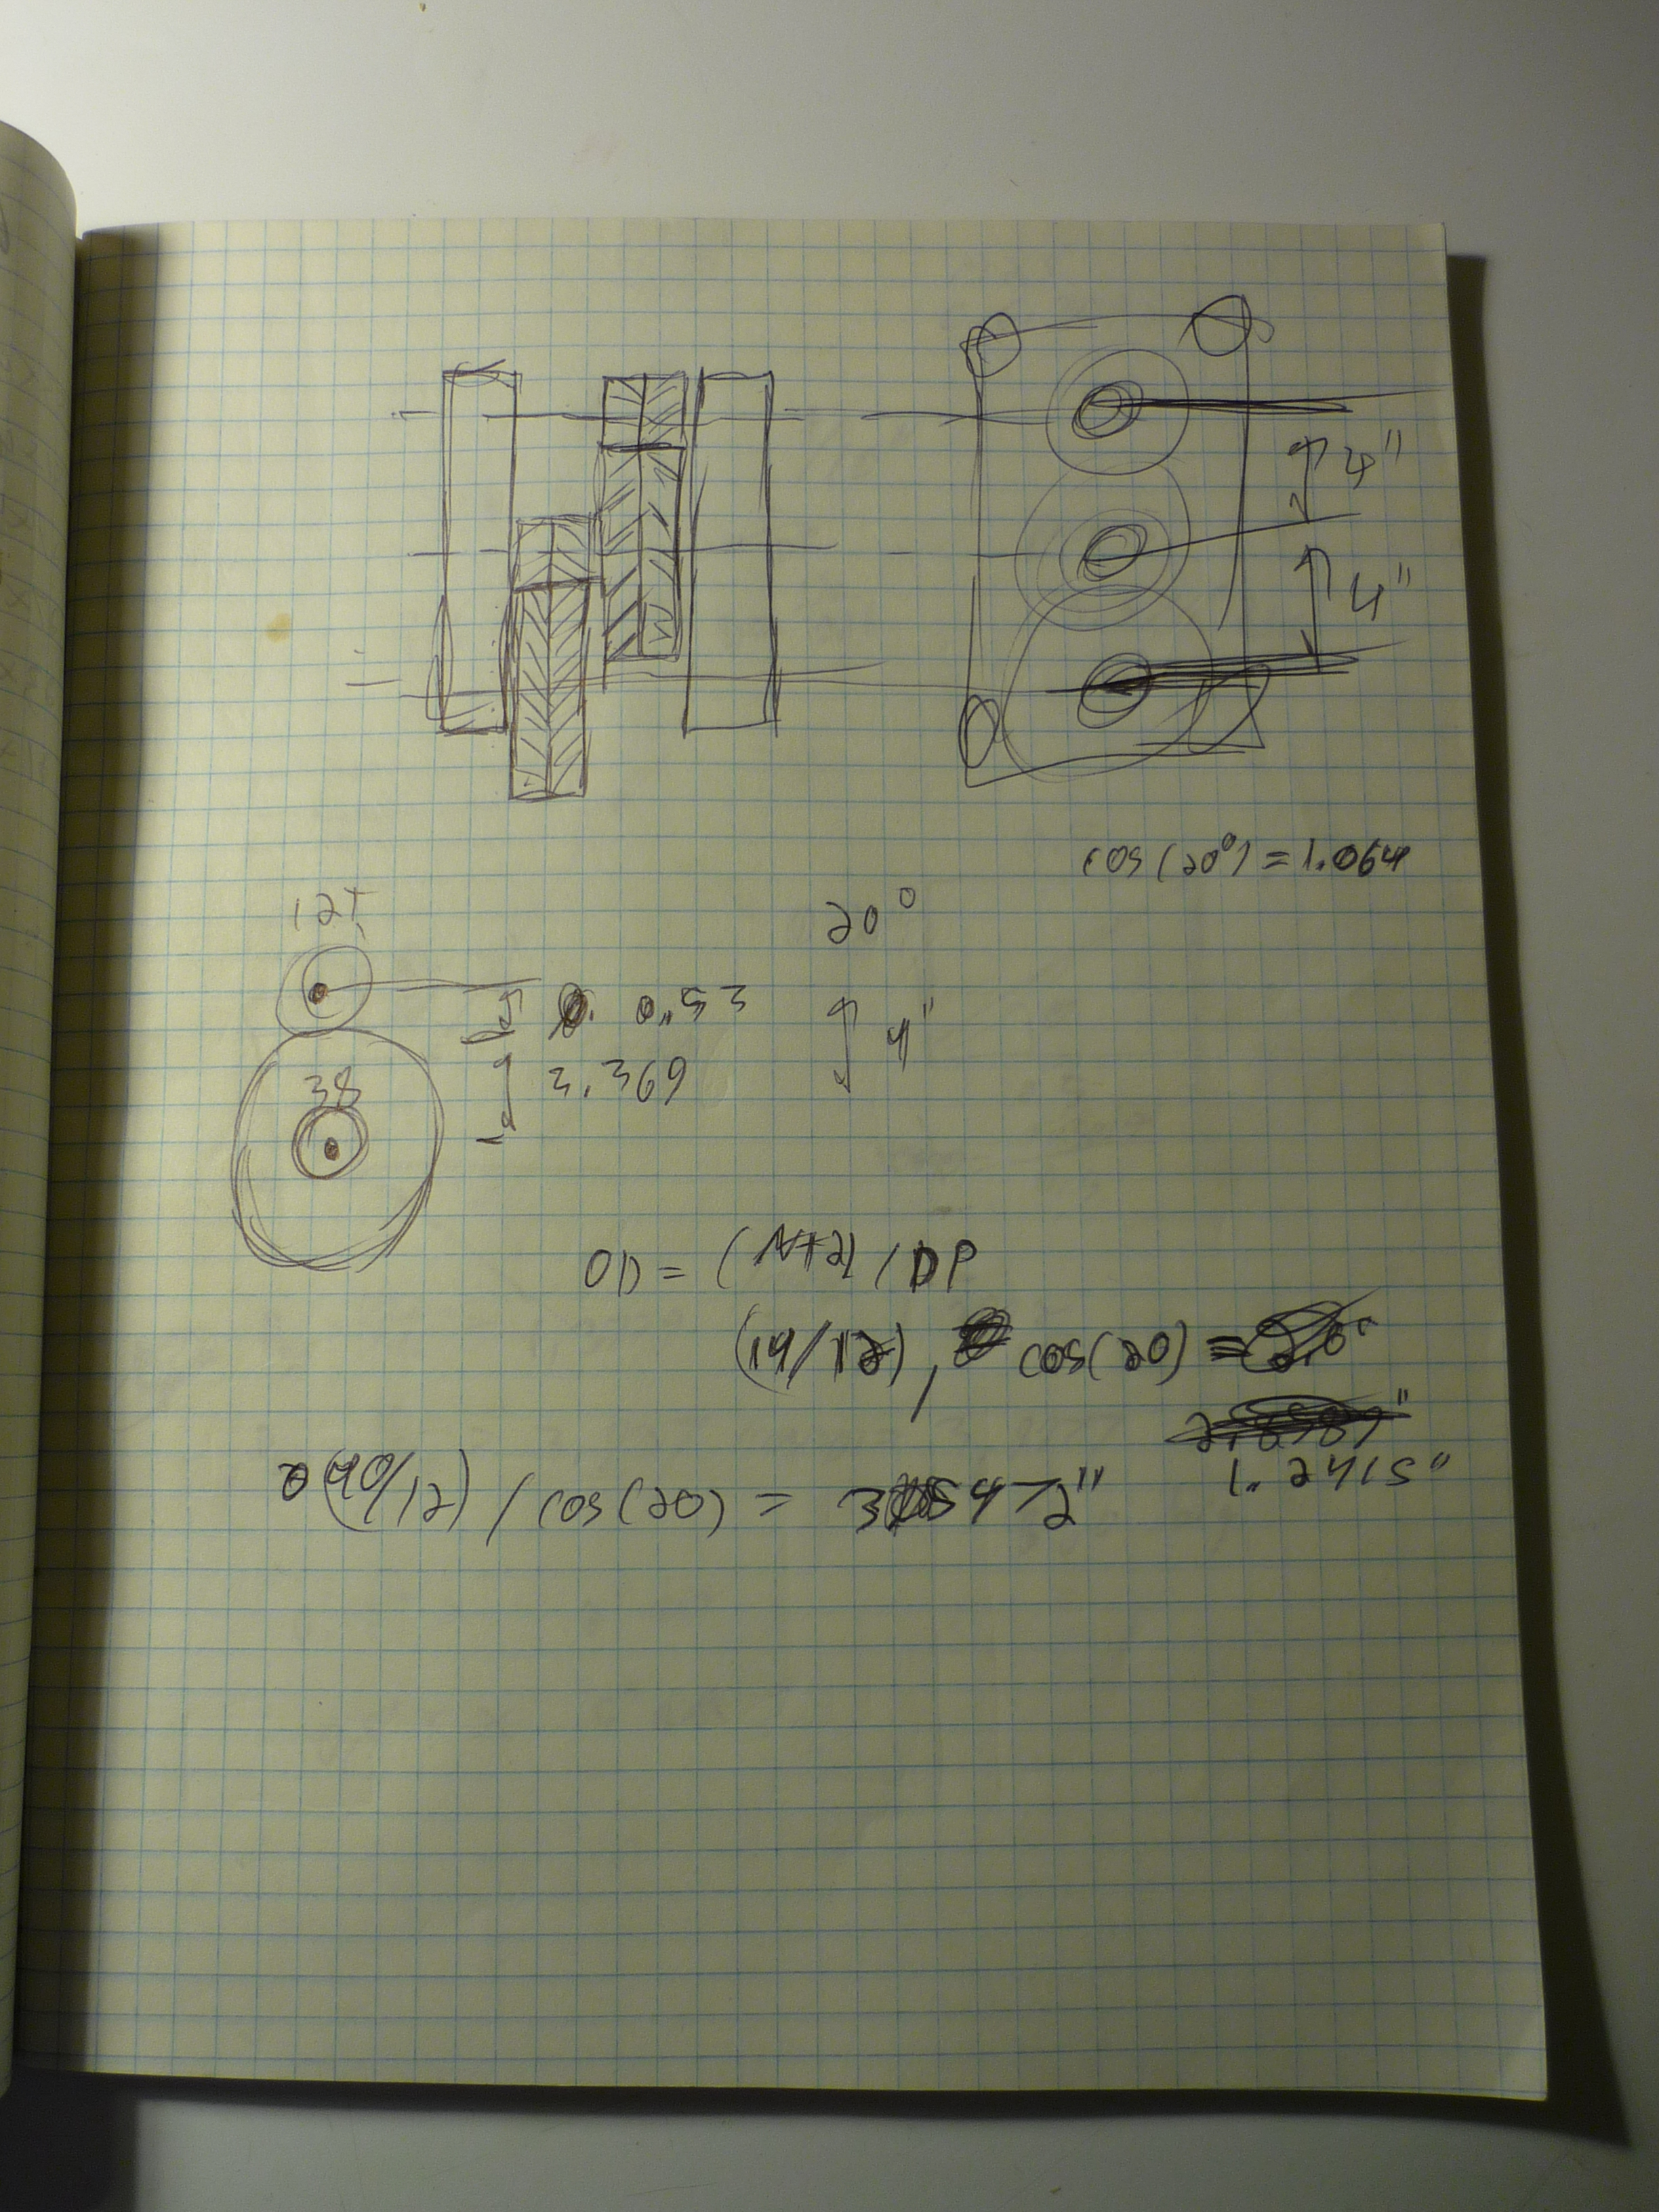 4"
4"
cos(20°) = 1.064
12T
20°
0.53
4"
3.369
38
OD = (N+2)/DP
(14/12)/cos(20) =
1.2415"
(40/12)/cos(20) =